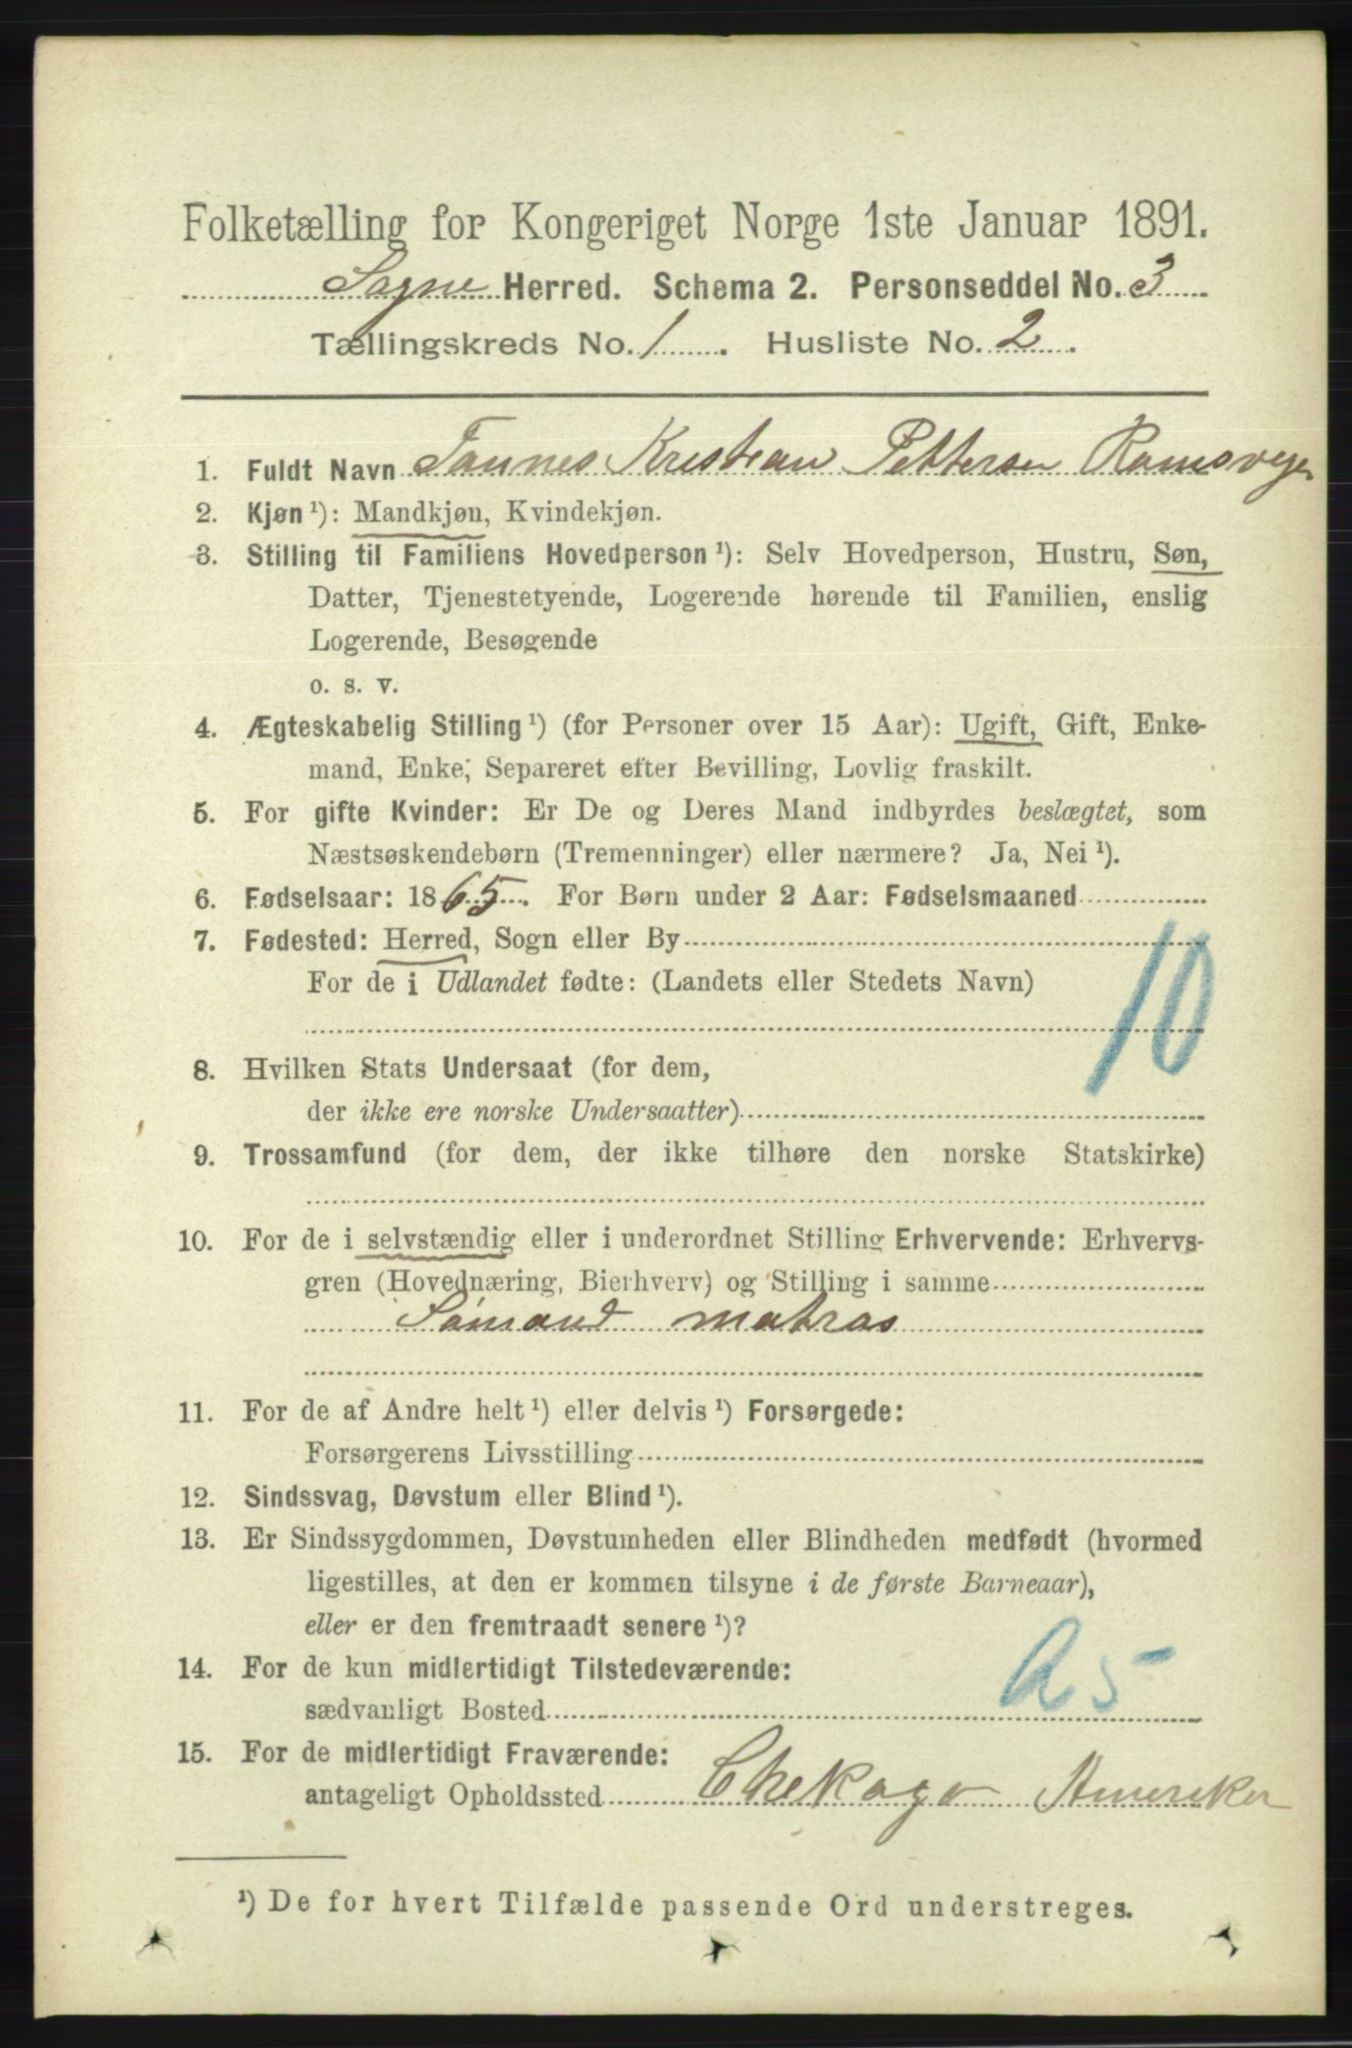 Folketælling for Kongeriget Norge 1ste Januar 1891.
Søgne Herred. Schema 2. Personseddel No. 3
Tællingskreds No. 1. Husliste No. 2.
1. Fuldt Navn Tannes Kristean Pettersen Ramsvejen
2. Kjøn ¹): Mandkjøn, Kvindekjøn.
3. Stilling til Familiens Hovedperson ¹): Selv Hovedperson, Hustru, Søn,
Datter, Tjenestetyende, Logerende hørende til Familien, enslig
Logerende, Besøgende
o. s. v.
4. Ægteskabelig Stilling ¹) (for Personer over 15 Aar): Ugift, Gift, Enke-
mand, Enke, Separeret efter Bevilling, Lovlig fraskilt.
5. For gifte Kvinder: Er De og Deres Mand indbyrdes beslægtet, som
Næstsøskendebørn (Tremenninger) eller nærmere? Ja, Nei ¹).
6. Fødselsaar: 1865. For Børn under 2 Aar: Fødselsmaaned
7. Fødested: Herred, Sogn eller By
For de i Udlandet fødte: (Landets eller Stedets Navn)
10
8. Hvilken Stats Undersaat (for dem,
der ikke ere norske Undersaatter)
9. Trossamfund (for dem, der ikke tilhøre den norske Statskirke)
10. For de i selvstændig eller i underordnet Stilling Erhvervende: Erhvervs-
gren (Hovednæring, Bierhverv) og Stilling i samme
Sømand matras
11. For de af Andre helt ¹) eller delvis ¹) Forsørgede:
Forsørgerens Livsstilling
12. Sindssvag, Døvstum eller Blind ¹).
13. Er Sindssygdommen, Døvstumheden eller Blindheden medfødt (hvormed
ligestilles, at den er kommen tilsyne i de første Barneaar),
eller er den fremtraadt senere ¹)?
14. For de kun midlertidigt Tilstedeværende:
sædvanligt Bosted
a 5
15. For de midlertidigt Fraværende:
antageligt Opholdssted Chekago Ameriker
¹) De for hvert Tilfælde passende Ord understreges.